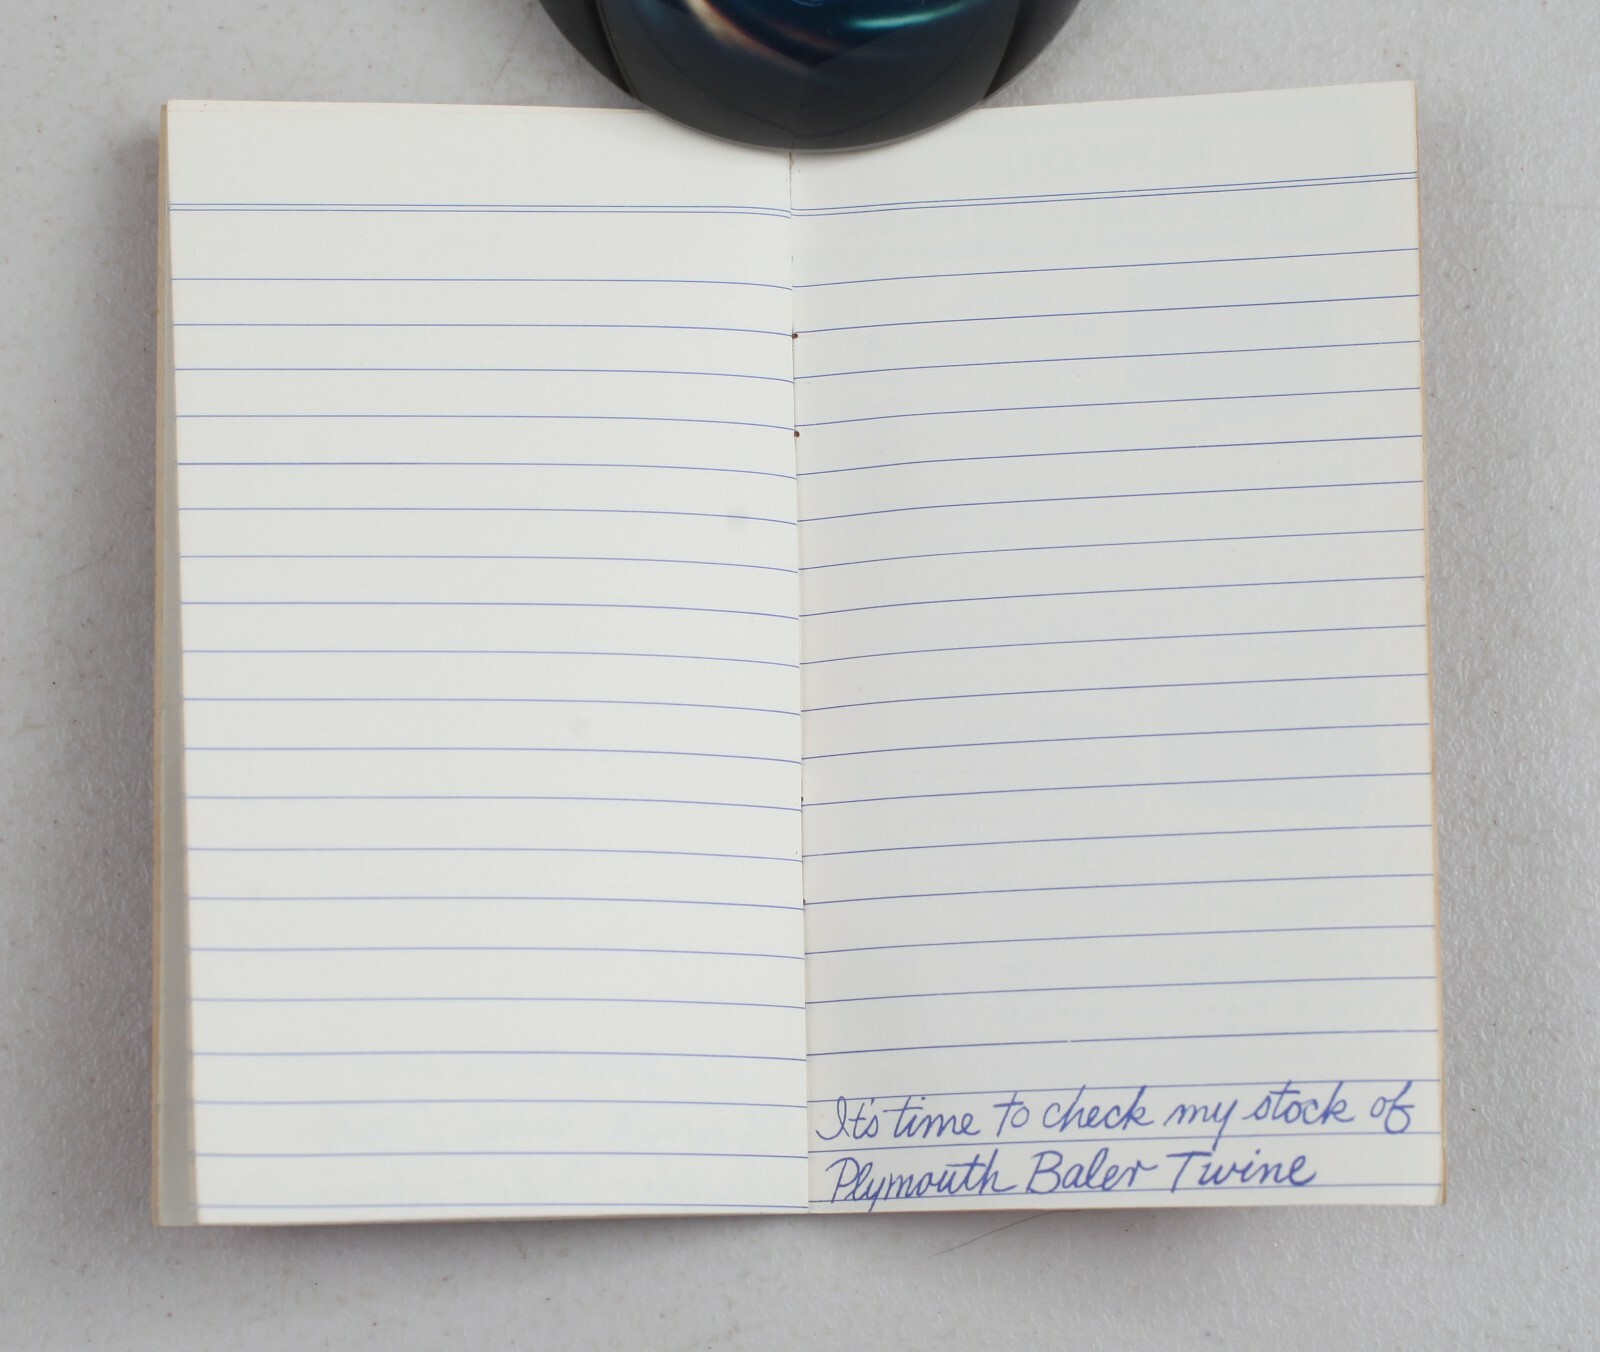 It's time to check my stock of
Plymouth Baler Twine